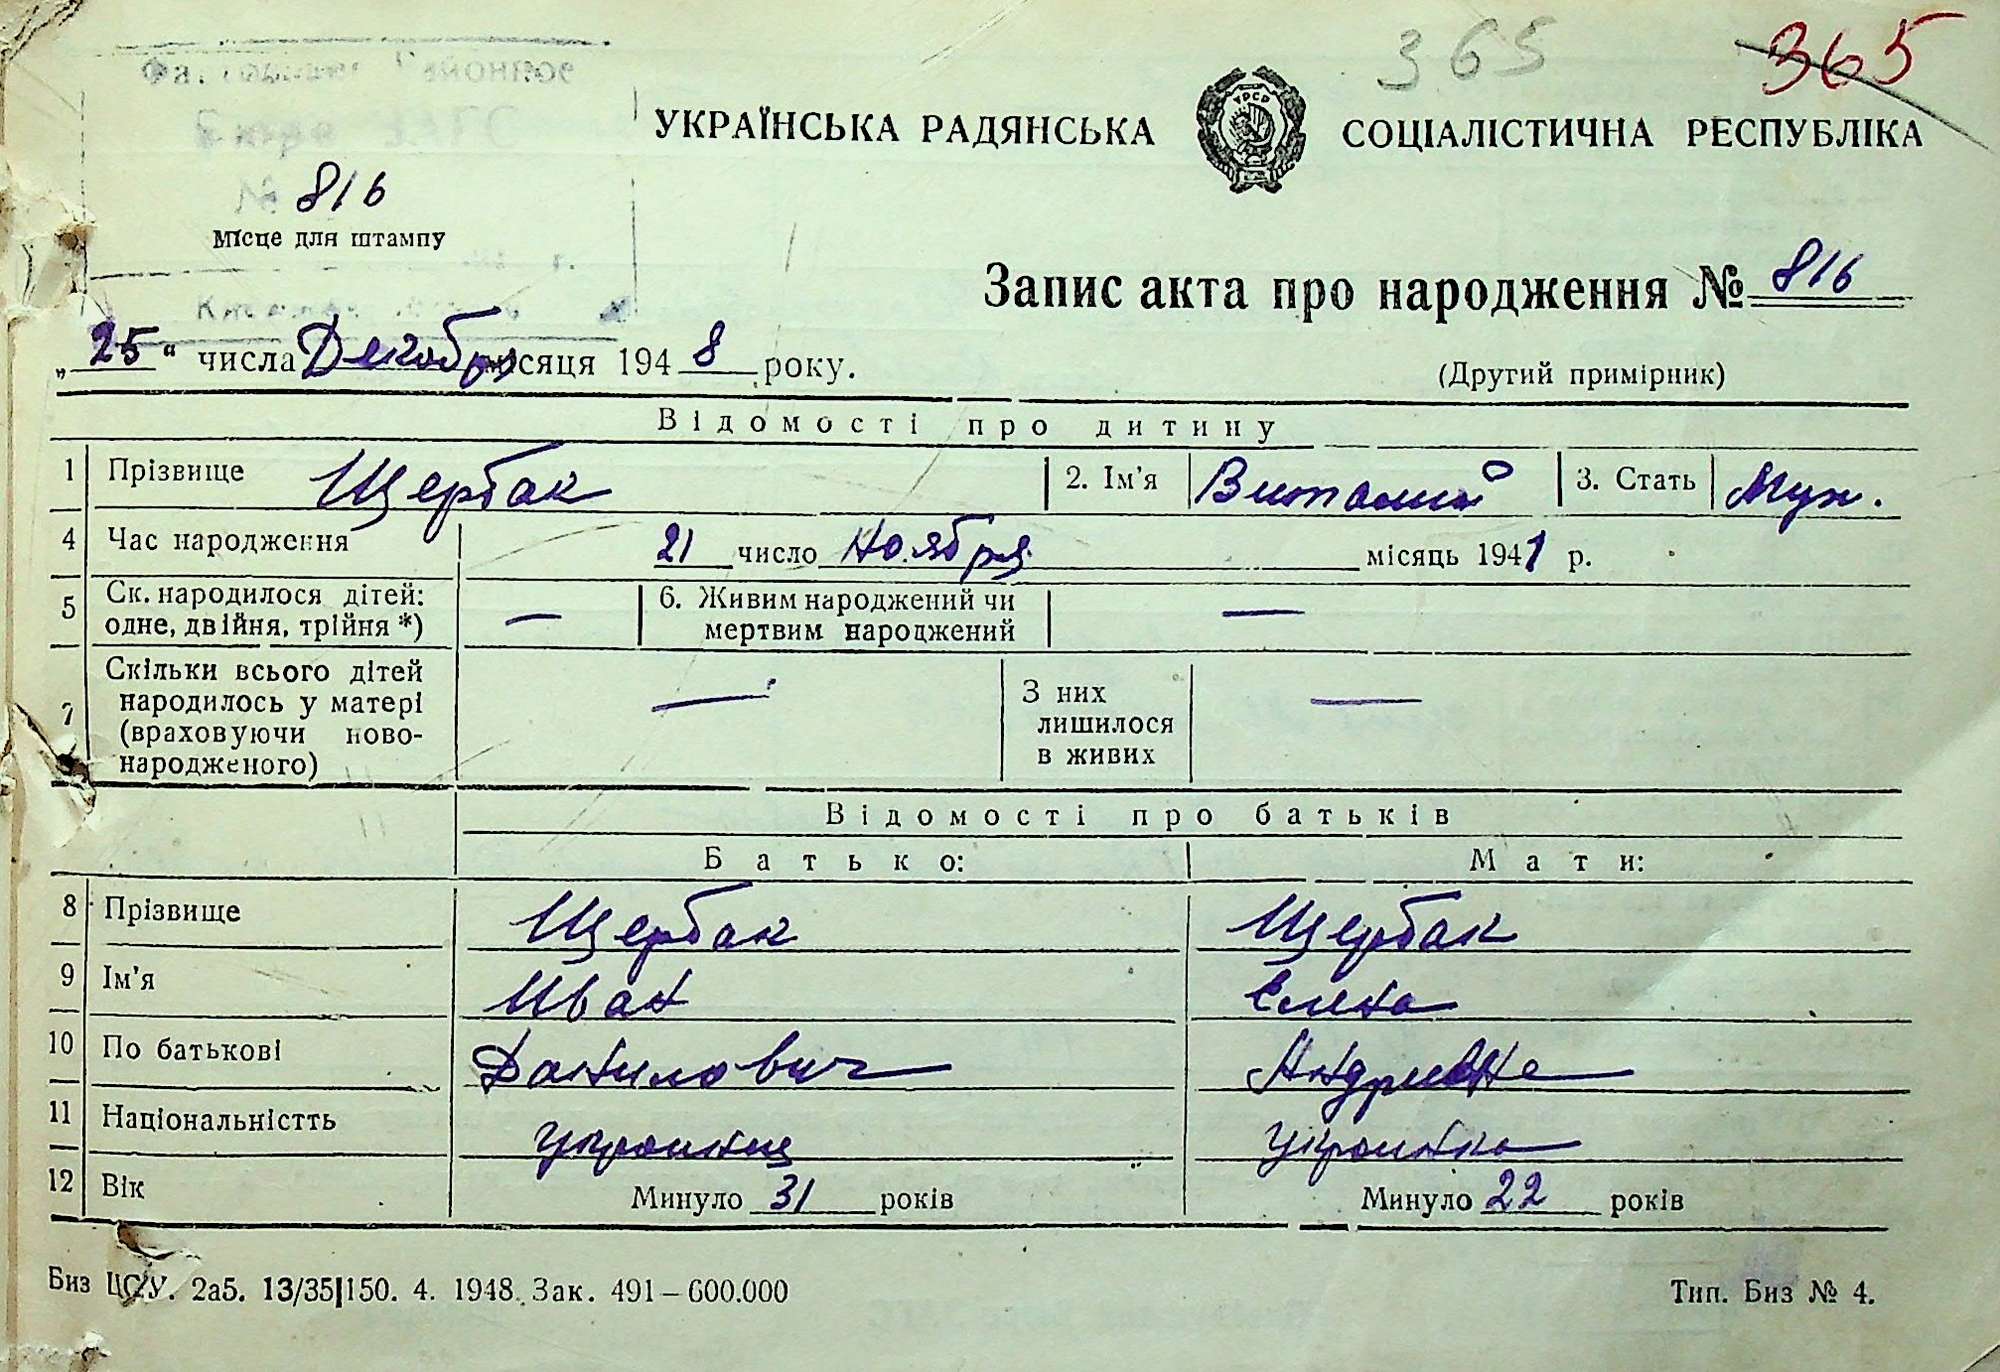 365 365
Районное
УКРАЇНСЬКА РАДЯНСЬКА УРСР СОЦІАЛІСТИЧНА РЕСПУБЛІКА
№ 816
Місце для штампу
Запис акта про народження № 816
„25“ числа Декабря місяця 1948 року.
(Другий примірник)
Відомості про дитину
1 Прізвище Щербак 2. Ім'я Виталий 3. Стать Муж.
4 Час народження 21 число Ноября місяць 1941 р.
5 Ск. народилося дітей: — 6. Живим народжений чи —
одне, двійня, трійня *) мертвим народжений
7 Скільки всього дітей — З них —
народилось у матері лишилося
(враховуючи ново- в живих
народженого)
Відомості про батьків
Батько: Мати:
8 Прізвище Щербак Щербак
9 Ім'я Иван Елена
10 По батькові Данилович Андреевна
11 Національністть украинец украинка
12 Вік Минуло 31 років Минуло 22 років
Биз ЦСУ. 2а5. 13/35|150. 4. 1948. Зак. 491 – 600.000 Тип. Биз № 4.